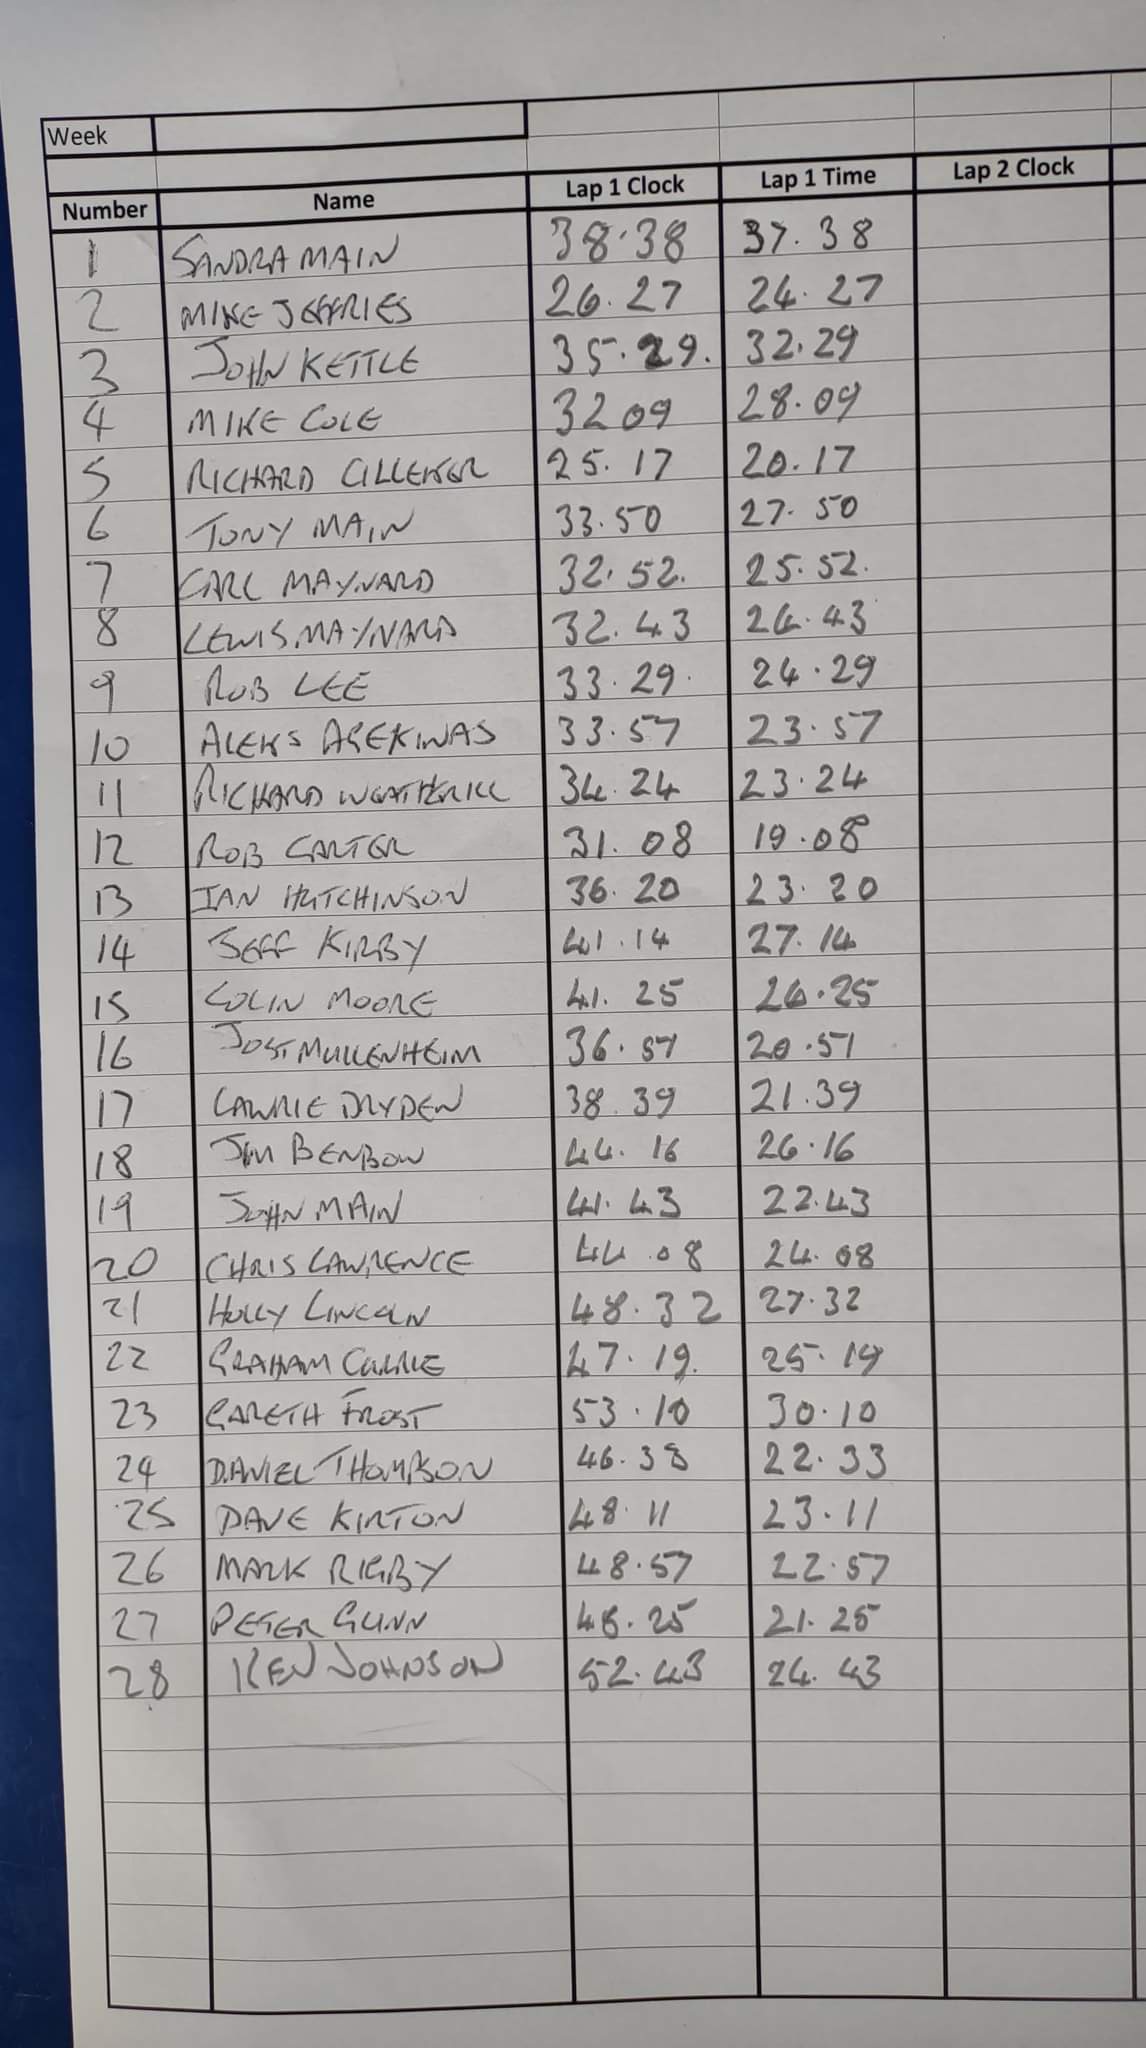 Week
Number Name Lap 1 Clock Lap 1 Time Lap 2 Clock
1 SANDRA MAIN 38.38 37.38
2 MIKE JEFFRIES 26.27 24.27
3 JOHN KETTLE 35.29. 32.29
4 MIKE COLE 32 09 28.09
5 RICHARD 25.17 20.17
6 TONY MAIN 33.50 27.50
7 CARL MAYNARD 32.52. 25.52.
8 LEWIS MAYNARD 32.43 24.43
9 ROB LEE 33.29. 24.29
10 ALEKS 33.57 23.57
11 RICHARD WEATHERILL 34.24 23.24
12 ROB CARTER 31.08 19.08
13 IAN HUTCHINSON 36.20 23.20
14 JEFF KIRBY 41.14 27.14
15 COLIN MOORE 41.25 26.25
16 JOST MULLENHEIM 36.57 20.57
17 LAWRIE DRYDEN 38.39 21.39
18 JIM BENBOW 44.16 26.16
19 JOHN MAIN 41.43 22.43
20 CHRIS LAWRENCE 44.08 24.08
21 HOLLY LINCOLN 48.32 27.32
22 GRAHAM CURRIE 47.19. 25.19
23 GARETH FROST 53.10 30.10
24 DANIEL THOMPSON 46.38 22.33
25 DAVE KIRTON 48.11 23.11
26 MARK RIGBY 48.57 22.57
27 PETER GUNN 48.25 21.25
28 KEV JOHNSON 52.43 24.43